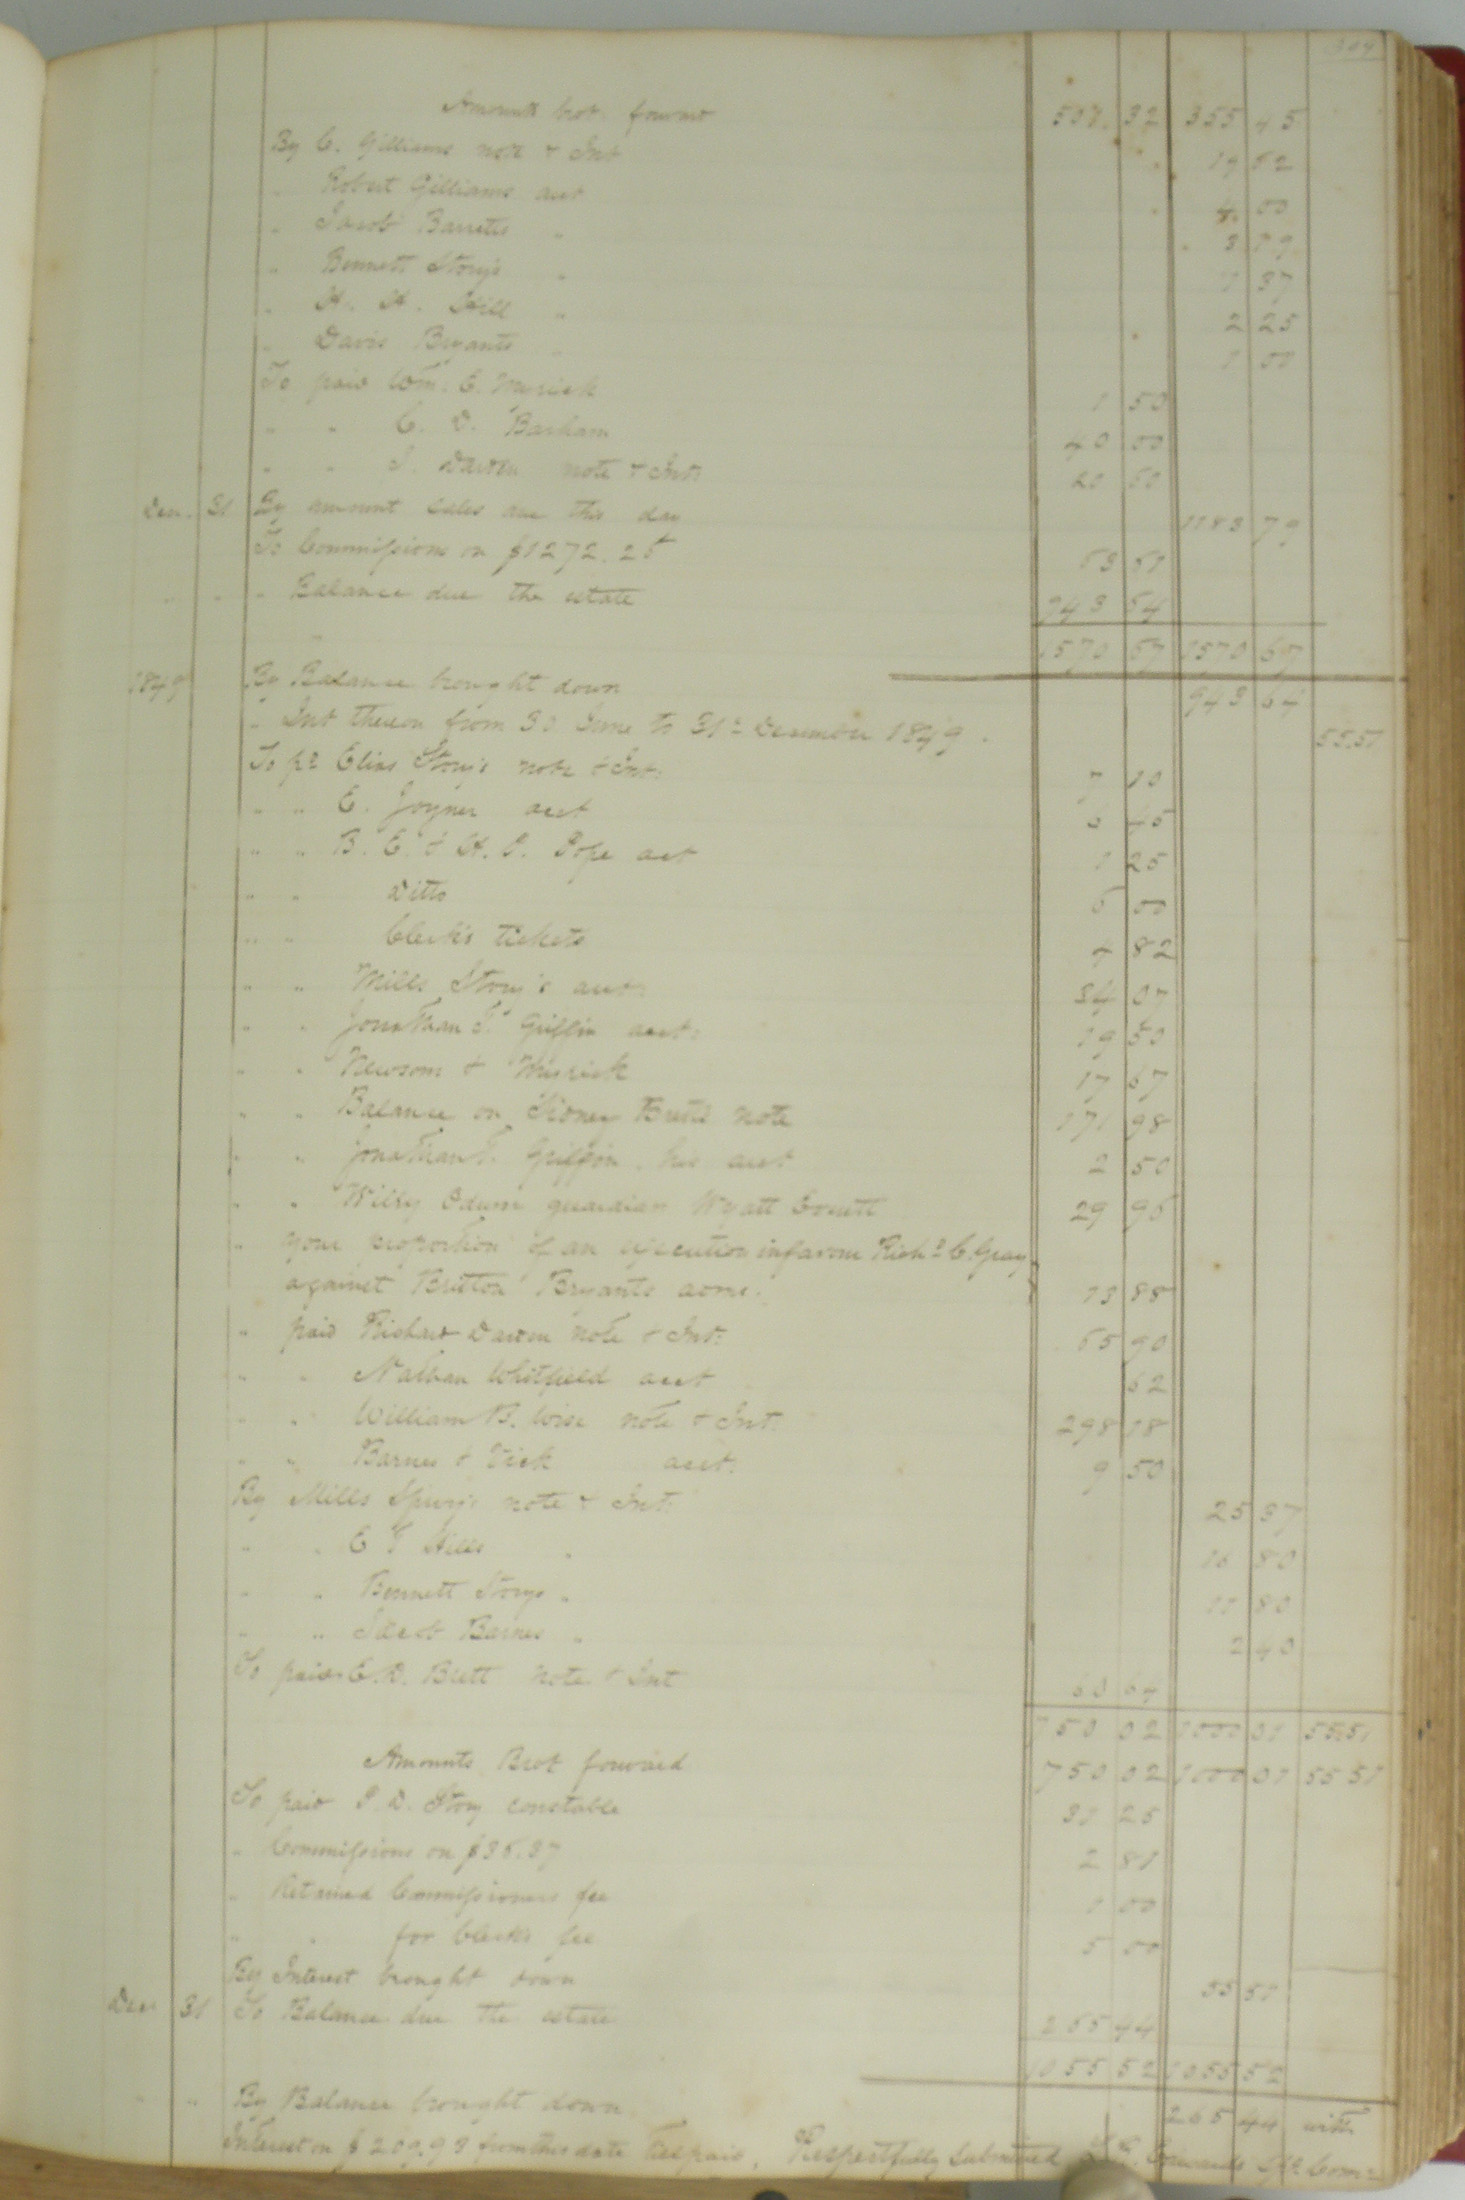 Amounts brot. forward 507. 32 355 45
By C. Gilliams note & Int 19 52
" Robert Gilliams acct 4. 00
" Jacob Barretts " 3 79
" Bennett Storys " 11 37
" H. H. Hill " 2 25
" Davis Bryants " 1 50
To paid Wm. E. Myrick 1 50
" " C. D. Barham 40 00
" " J. Darden note & Int: 20 60
Dec. 31 By amount sales due this day 1183 79
To Commissions on $1272.25 63 61
" " " Balance due the estate 943 64
1570 67 1570 67
1849 By Balance brought down 943 64
" Int thereon from 30 June to 31st December 1849. 55.51
To pd Elias Story's note & Int: 7 10
" " E. Joyner acct 2 45
" " B. E. & H. P. Pope acct 1 25
" " Ditto 5 00
" " Clerk's tickets 4 82
" " Mills Story's acct: 34 07
" " Jonathan T. Griffin acct: 19 50
" " Newsom & Myrick 17 67
" " Balance on Sidney Bretts note 171 98
" " Jonathan T. Griffin, his acct 2 50
" " Willey Odum guardian Wyatt Everett 29 96
" your proportion of an execution in favour Richd. C. Gray
against Britton Bryants admr. 13 88
" paid Richard Darden note & Int: 65 90
" " Nathan Whitfield acct 62
" " William B. Wise note & Int: 298 18
" " Barnes & Vick acct: 9 50
By Mills Spivey's note & Int: 25 37
" " E T Hills " 16 80
" " Bennett Storys " 11 80
" " Jacob Barnes " 2 40
To paid E. D. Brett note & Int 60 64
750 02 1000 01 55.51
Amounts Brot forward 750 02 1000 01 55 51
To paid P. D. Story constable 31 25
" Commissions on $56.37 2 81
" Retained Commissioners fee 1 00
" " for Clerk's fee 5 00
By Interest brought down 55 51
Dec 31 To Balance due the estate 265 44
1055 52 1055 52
" " By Balance brought down 265 44 with
Interest on $209.98 from this date till paid, Respectfully Submitted Edwards Spl. Comr